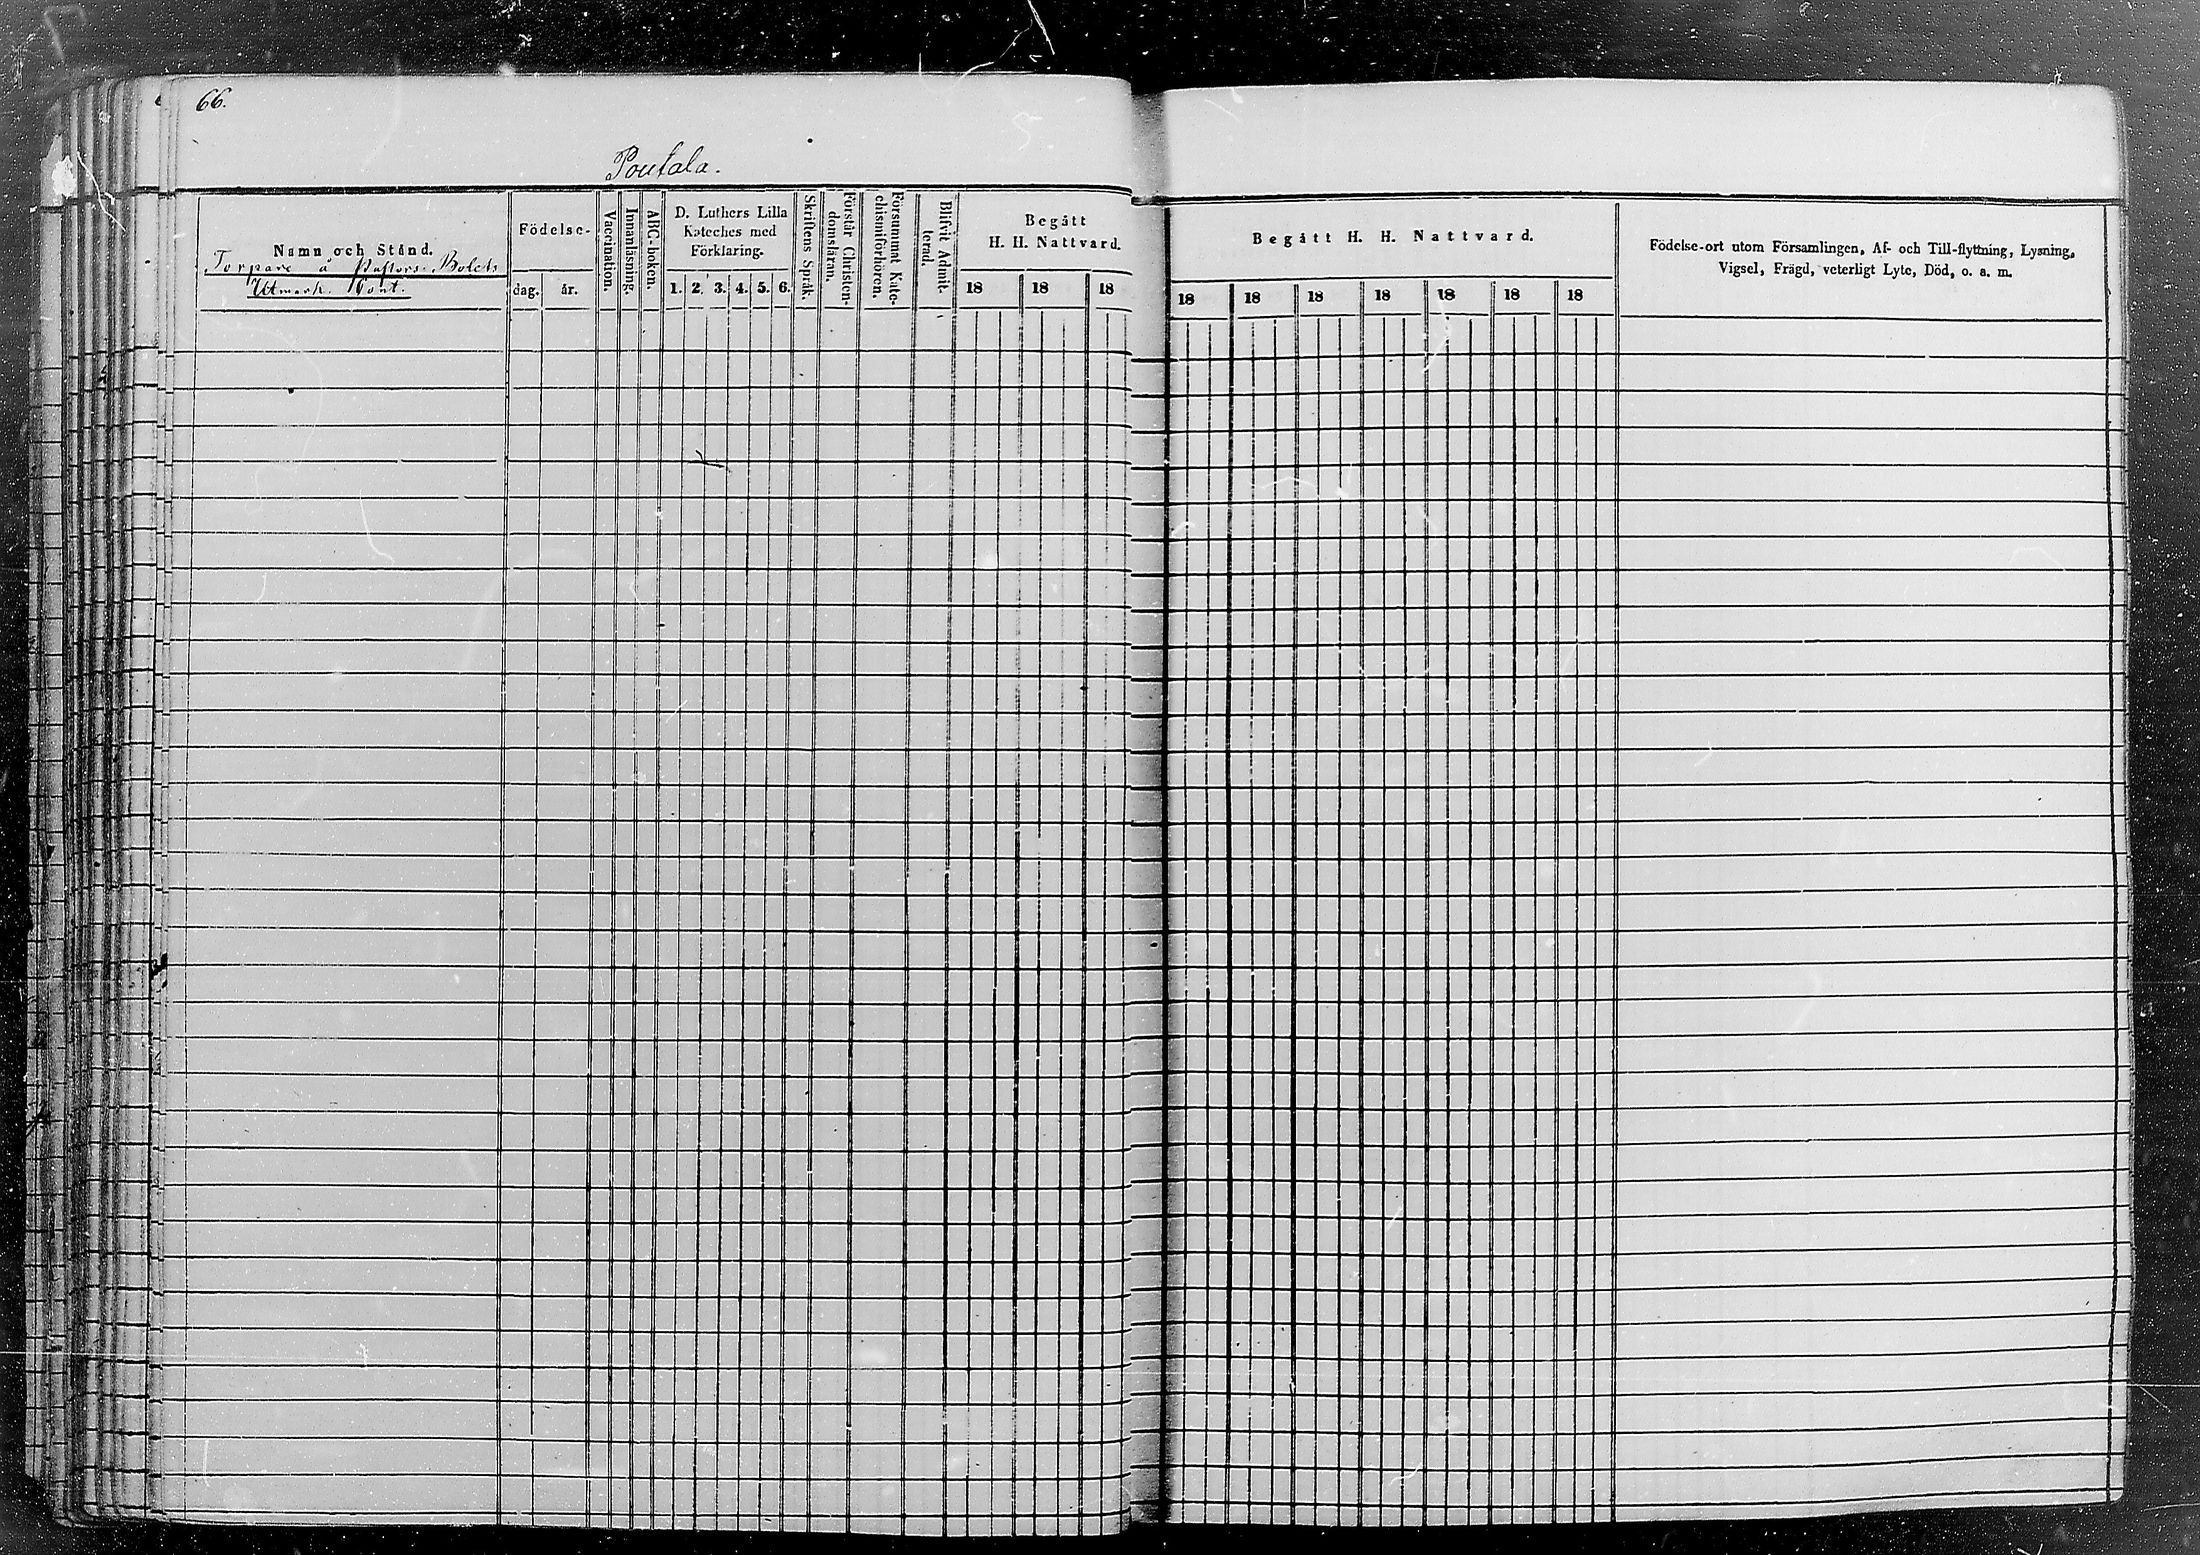 66.
Poutala.
Namn och Stånd.
Torpare å Pastors-Bolets
Utmark. Cont.
Födelse-
dag. år.
Vaccination.
Innanläsning.
ABC-boken.
D. Luthers Lilla
Kateches med
Förklaring.
1. 2. 3. 4. 5. 6.
Skriftens Språk.
Förstår Christen-
domsläran.
Försummat Kate-
chismiförhören.
Blifvit Admit-
terad.
Begått
H. H. Nattvard.
18 18 18
Begått H. H. Nattvard.
18 18 18 18 18 18 18
Födelse-ort utom Församlingen, Af- och Till-flyttning, Lysning,
Vigsel, Frägd, veterligt Lyte, Död, o. s. m.